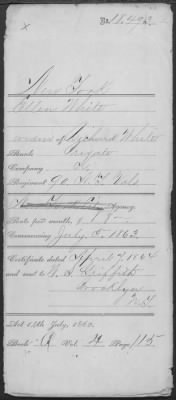 No. 18,492.
New York
Ellen White
widow of Richard White
Rank Private
Company
Regiment 90 N.Y. Vols
New York City Agency.
Rate per month, 8
Commencing July 5, 1863.
Certificate dated April 7, 1864
and sent to Griffith
Brooklyn
N.Y.
Act 14th July, 1862.
Book A Vol. 4 Page 115